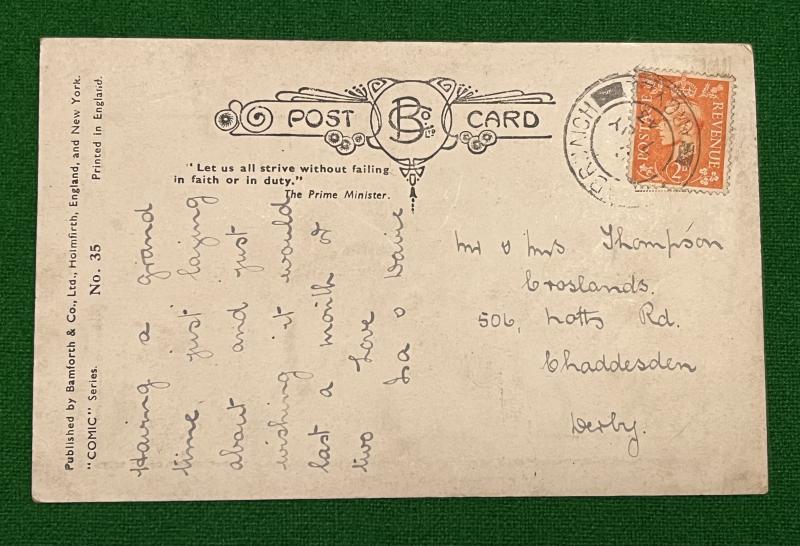 Published by Bamforth & Co., Ltd., Holmfirth, England, and New York.
"COMIC" Series. No. 35 Printed in England.
POST CARD
B Co Ltd
"Let us all strive without failing
in faith or in duty."
The Prime Minister.
Having a grand
time, just laying
about and just
wishing it would
last a month or
two Love
POSTAGE REVENUE
2D
Mr & Mrs Thompson
Croslands.
506, Notts Rd.
Chaddesden
Derby.